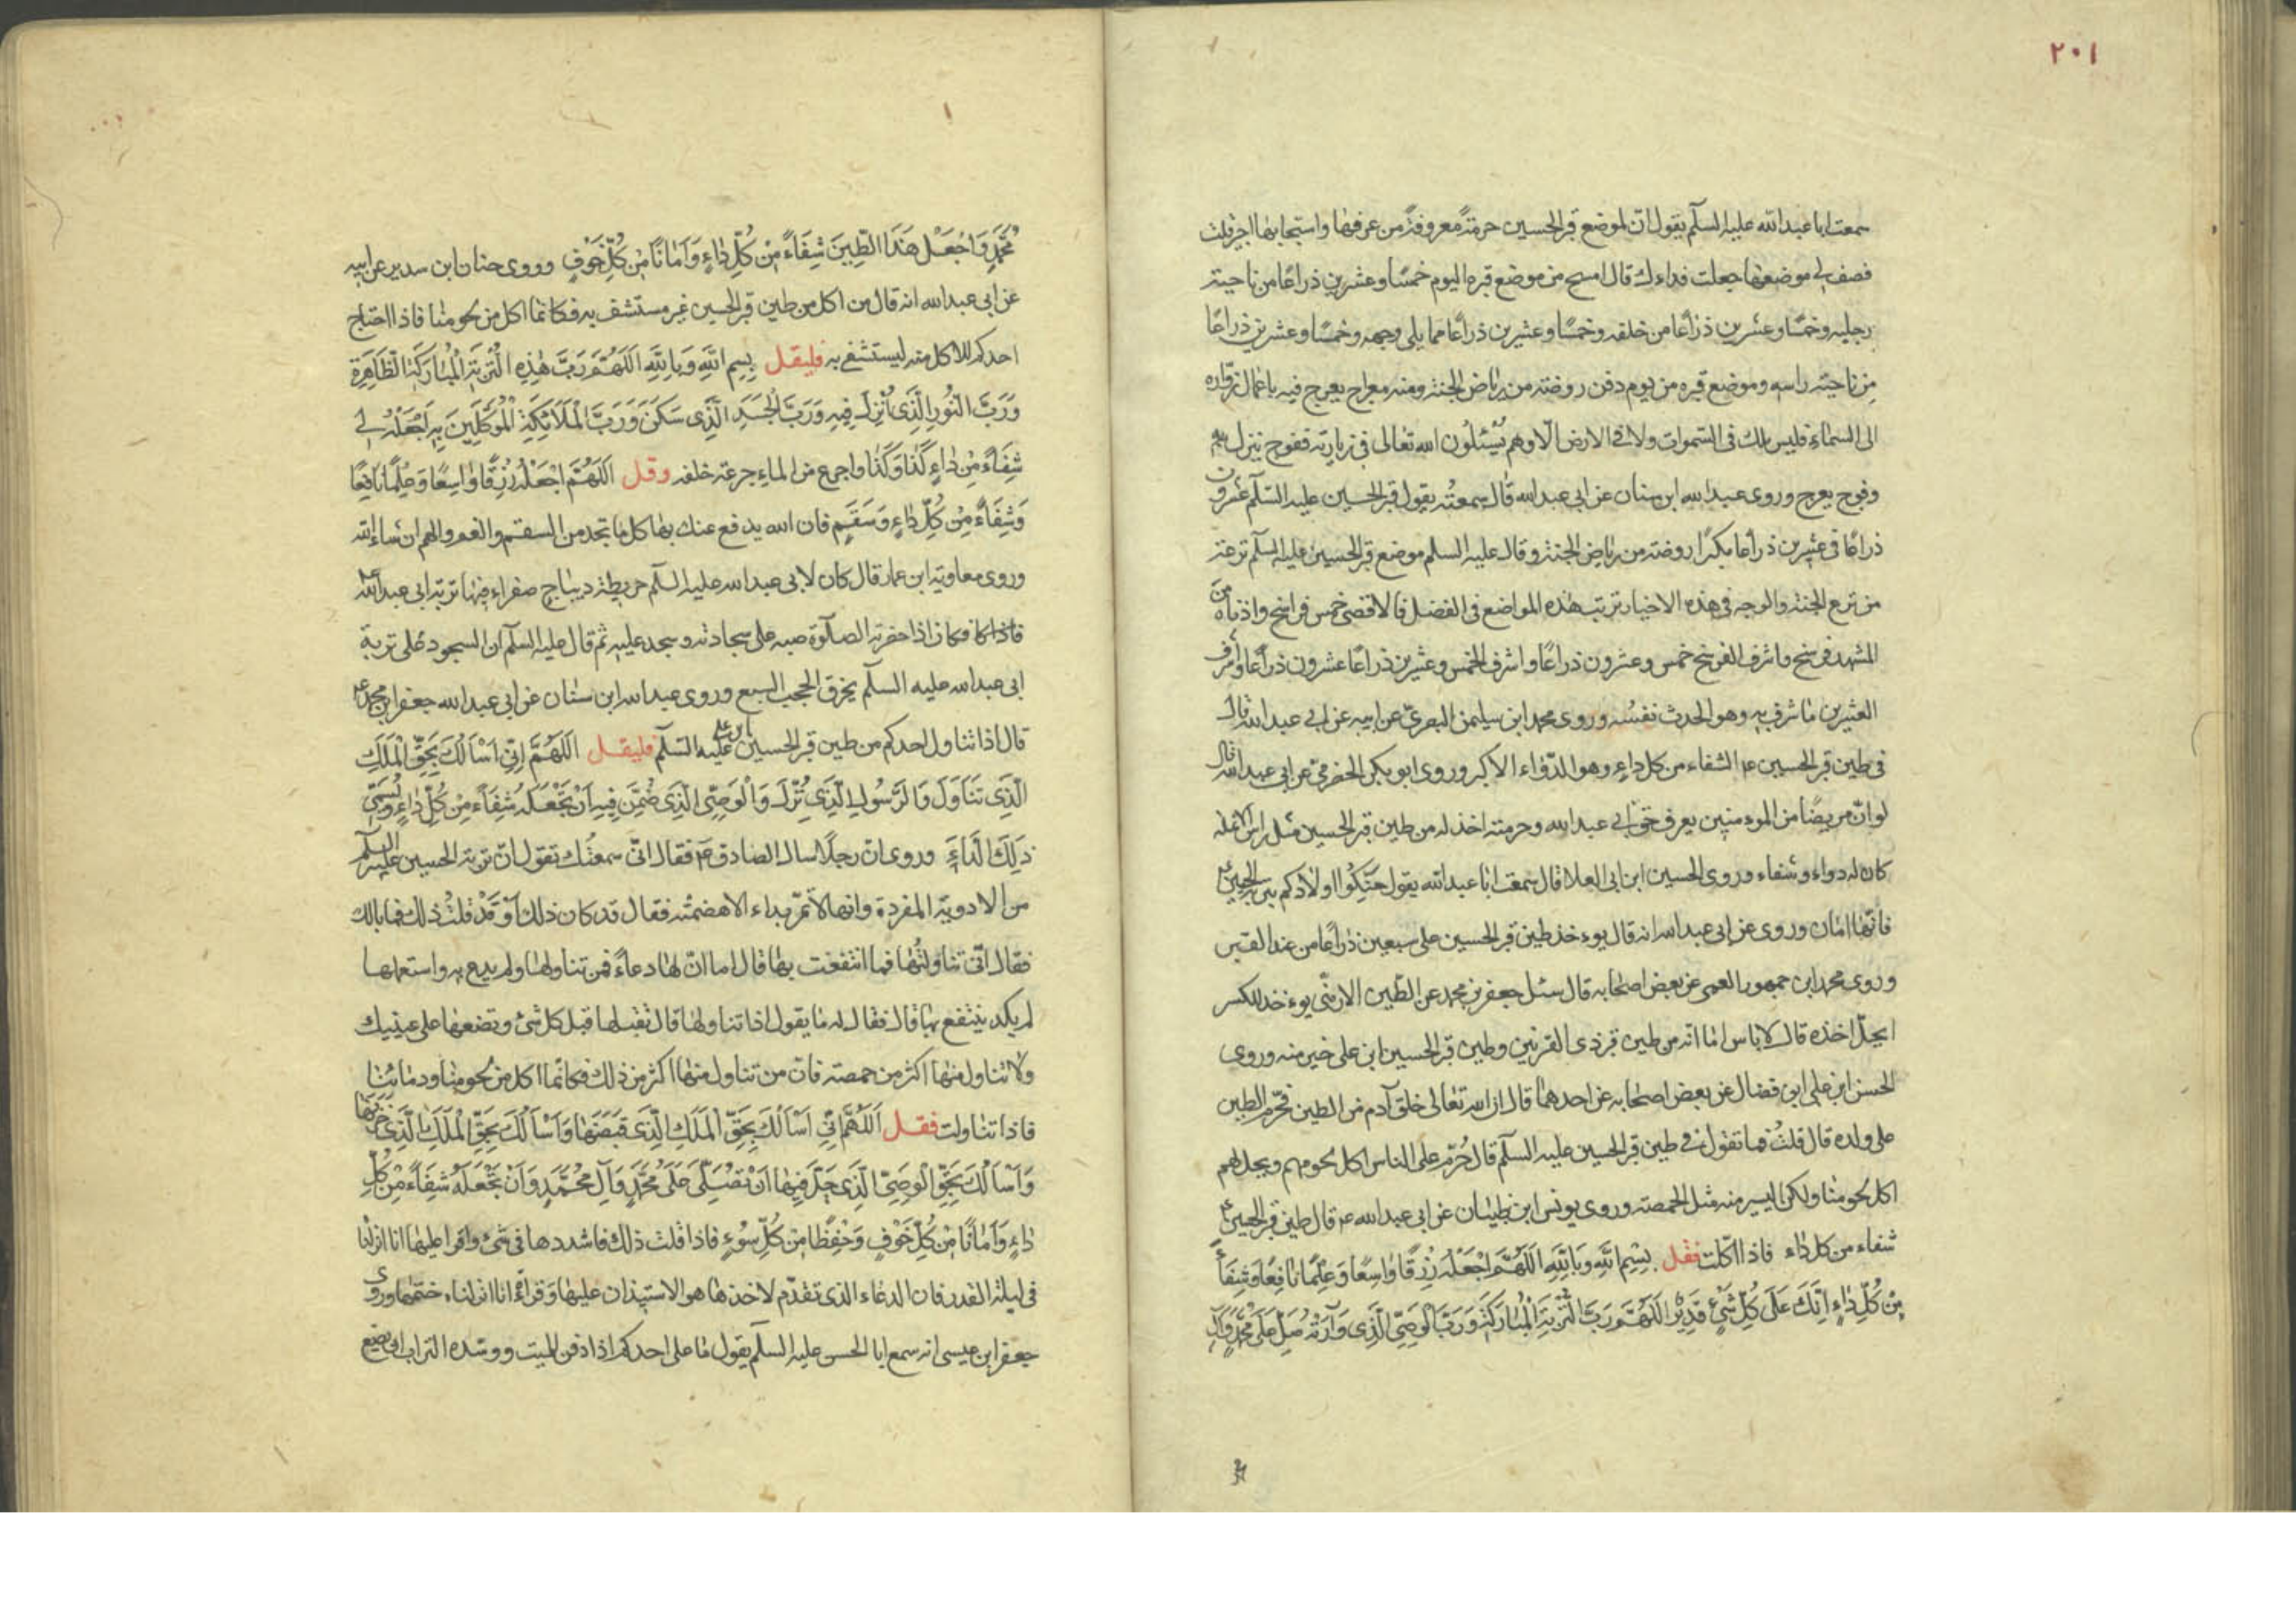 ٢٠١
سمعت ابا عبد الله عليه السلم يقول ان لموضع قبر الحسين حرمةً معروفة من عرفها واستجار بها اجير قلت
فصف لى موضعها جعلت فداءك قال امسح من موضع قبره اليوم خمسًا وعشرين ذراعًا من ناحيته
رجليه وخمسًا وعشرين ذراعًا من خلفه وخمسًا وعشرين ذراعًا مما يلى وجهه وخمسًا وعشرين ذراعًا
من ناحيته راسه وموضع قبره من يوم دفن روضته من رياض الجنة ومنه معراج يعرج فيه باعمال زواره
الى السماء فليس ملك فى السموات ولا فى الارض الّا وهم يسئلون الله تعالى فى زيارته ففوج ينزل
وفوج يعرج وروى عبد الله ابن سنان عن ابى عبد الله قال سمعته يقول قبر الحسين عليه السلم عشرون
ذراعًا فى عشرين ذراعًا مكسرًا روضته من رياض الجنة وقال عليه السلم موضع قبر الحسين عليه السلم ترعة
من ترع الجنة والوجه فى هذه الاخبار ترتب هذه المواضع فى الفضل فالاقصى خمس فراسخ وادناه من
المشهد فرسخ واشرف الفرسخ خمس وعشرون ذراعًا واشرف الخمس وعشرين ذراعًا عشرون ذراعًا واشرف
العشرين ما شرف به وهو الحدث نفسه وروى محمد ابن سليمن البصرىّ عن ابيه عن ابى عبد الله قال
فى طين قبر الحسين ع الشفاء من كل داء وهو الدواء الاكبر وروى ابو بكر الحضرمىّ عن ابى عبد الله قال
لو انّ مريضًا من الموءمنين يعرف حق ابى عبد الله وحرمته اخذ له من طين قبر الحسين مثل راس الانملة
كان له دواء وشفاء وروى الحسين ابن ابى العلا قال سمعت ابا عبد الله يقول حنّكوا اولادكم بتربة الحسين ع
فانها امان وروى عن ابى عبد الله انه قال يوءخذ طين قبر الحسين على سبعين ذراعًا من عند القبر
وروى محمد ابن جمهور العمى عن بعض اصحابه قال سئل جعفر بن محمد عن الطين الارمنى يوءخذ للكسر
ايحلّ اخذه قال لا باس اما انه من طين قبر ذى القرنين وطين قبر الحسين ابن على خير منه وروى
الحسن ابن على ابن فضال عن بعض اصحابه عن احدهما قال ان الله تعالى خلق آدم من الطين فحرّم الطين
على ولده قال قلت فما تقول فى طين قبر الحسين عليه السلم قال حُرّم على الناس اكل لحومهم ويحل لهم
اكل لحومنا ولكن اليسير منه مثل الحمصة وروى يونس ابن ظبيان عن ابى عبد الله ع قال طين قبر الحسين ع
شفاء من كل داء فاذا اكلت فقل بِسْمِ اللّهِ وَبِاللّهِ اَللّهُمَّ اجْعَلْهُ رِزْقًا وَاسِعًا وَعِلْمًا نَافِعًا وَشِفَاءً
مِنْ كُلِّ دَاءٍ اِنَّكَ عَلَى كُلِّ شَىْءٍ قَدِيرٌ اَللّهُمَّ رَبَّ التُّرْبَةِ الْمُبَارَكَةِ وَرَبَّ الْوَصِىِّ الَّذِى وَارَتْهُ صَلِّ عَلَى مُحَمَّدٍ وَآلِ
مُحَمَّدٍ وَاجْعَلْ هَذَا الطِّينَ شِفَاءً مِنْ كُلِّ دَاءٍ وَاَمَانًا مِنْ كُلِّ خَوْفٍ وروى حنان ابن سدير عن ابيه
عن ابى عبد الله انه قال من اكل من طين قبر الحسين غير مستشف به فكانما اكل من لحومنا فاذا احتاج
احدكم للاكل منه ليستشفى به فليقل بِسِمِ اللّهِ وَبِاللّهِ اَللّهُمَّ رَبَّ هٰذِهِ التُّرْبَةِ الْمُبَارَكَةِ الطَّاهِرَةِ
وَرَبَّ النُّورِ الَّذِى اُنْزِلَ فِيهِ وَرَبَّ الْجَسَدِ الَّذِى سَكَنَ وَرَبَّ الْمَلَائِكَةِ الْمُوَكَّلِينَ بِهِ اجْعَلْهُ لِى
شِفَاءً مِنْ دَاءٍ كَذَا وَكَذَا واجرع من الماء جرعة خلفه وقل اَللّهُمَّ اجْعَلْهُ رِزْقًا وَاسِعًا وَعِلْمًا نَافِعًا
وَشِفَاءً مِنْ كُلِّ دَاءٍ وَسَقَمٍ فان الله يدفع عنك بها كل ما تجد من السقم والغم والهم ان شاء الله
وروى معاوية ابن عمار قال كان لابى عبد الله عليه السلم خريطة ديباج صفراء فيها تربة ابى عبد الله ع
فكان اذا حضرته الصلوة صبه على سجادته وسجد عليه ثم قال عليه السلم ان السجود على تربة
ابى عبد الله عليه السلم يخرق الحجب السبع وروى عبد الله ابن سنان عن ابى عبد الله جعفر ابن محمد ع
قال اذا تناول احدكم من طين قبر الحسين عليه السلم فليقل اَللّهُمَّ اِنِّى اَسْاَلُكَ بِحَقِّ الْمَلَكِ
الَّذِى تَنَاوَلَ وَالرَّسُولِ الَّذِى نُزِّلَ وَالْوَصِىِّ الَّذِى ضُمِّنَ فِيهِ اَنْ تَجْعَلَهُ شِفَاءً مِنْ كُلِّ دَاءٍ وَيُسَمِّى
ذٰلِكَ الدَّاءَ وروى ان رجلًا سال الصادق ع فقال انى سمعتك تقول انّ تربة الحسين عليه السلم
من الادوية المفردة وانها لا تمرّ بداء الا هضمته فقال قد كان ذلك اَوْ قَدْ قلت ذلك فما بالك
فقال انّى تناولتها فما انتفعت بها قال اما انّ لها دعاءً فمن تناولها ولم يدع به واستعملها
لم يكد ينتفع بها قال فقال له ما يقول اذا تناولها قال تقبلها قبل كل شئ وتضعها على عينيك
ولا تناول منها اكثر من حمصة فان من تناول منها اكثر من ذلك فكانما اكل من لحومنا ودمائنا
فاذا تناولت فقل اَللّهُمَّ اِنِّى اَسْاَلُكَ بِحَقِّ الْمَلَكِ الَّذِى قَبَضَهَا وَاَسْاَلُكَ بِحَقِّ الْمَلَكِ الَّذِى خَزَنَهَا
وَاَسْاَلُكَ بِحَقِّ الْوَصِىِّ الَّذِى حَلَّ فِيهَا اَنْ تُصَلِّىَ عَلَى مُحَمَّدٍ وَآلِ مُحَمَّدٍ وَاَنْ تَجْعَلَهُ شِفَاءً مِنْ كُلِّ
دَاءٍ وَاَمَانًا مِنْ كُلِّ خَوْفٍ وَحِفْظًا مِنْ كُلِّ سُوءٍ فاذا قلت ذلك فاشددها فى شئ واقرا عليها انا انزلنا
فى ليلة القدر فان الدعاء الذى تقدّم لاخذها هو الاستيذان عليها وقراءة انا انزلناه ختمها وروى
جعفر ابن عيسى انه سمع ابا الحسن عليه السلم يقول ما على احدكم اذا دفن الميت ووسّده التراب ان يضع